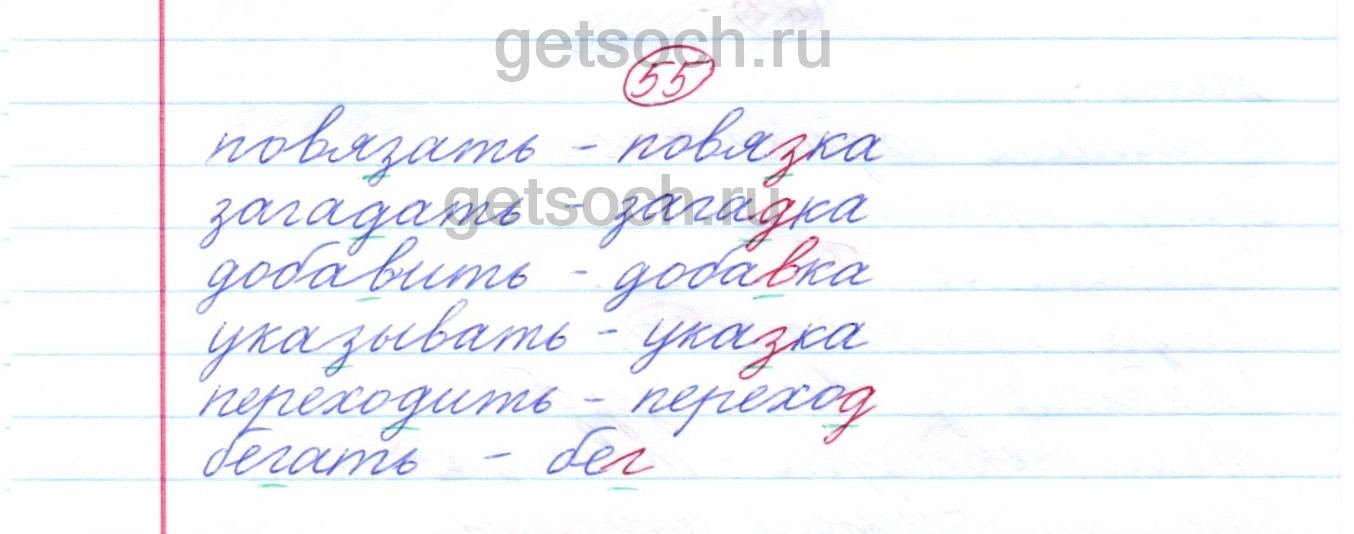 getsoch.ru
55
повязать - повязка
getsoch.ru
загадать - загадка
добавить - добавка
указывать - указка
переходить - переход
бегать - бег